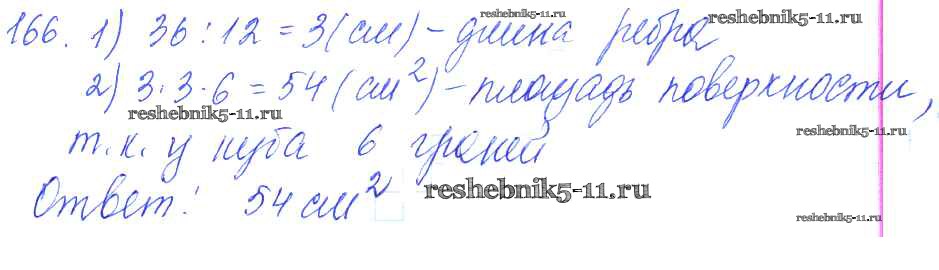 reshebnik5-11.ru
reshebnik5-11.ru
166. 1) 36 : 12 = 3 (см) – длина ребра
2) 3 · 3 · 6 = 54 (см²) – площадь поверхности,
reshebnik5-11.ru
reshebnik5-11.ru
т.к. у куба 6 граней
Ответ: 54 см²
reshebnik5-11.ru
reshebnik5-11.ru